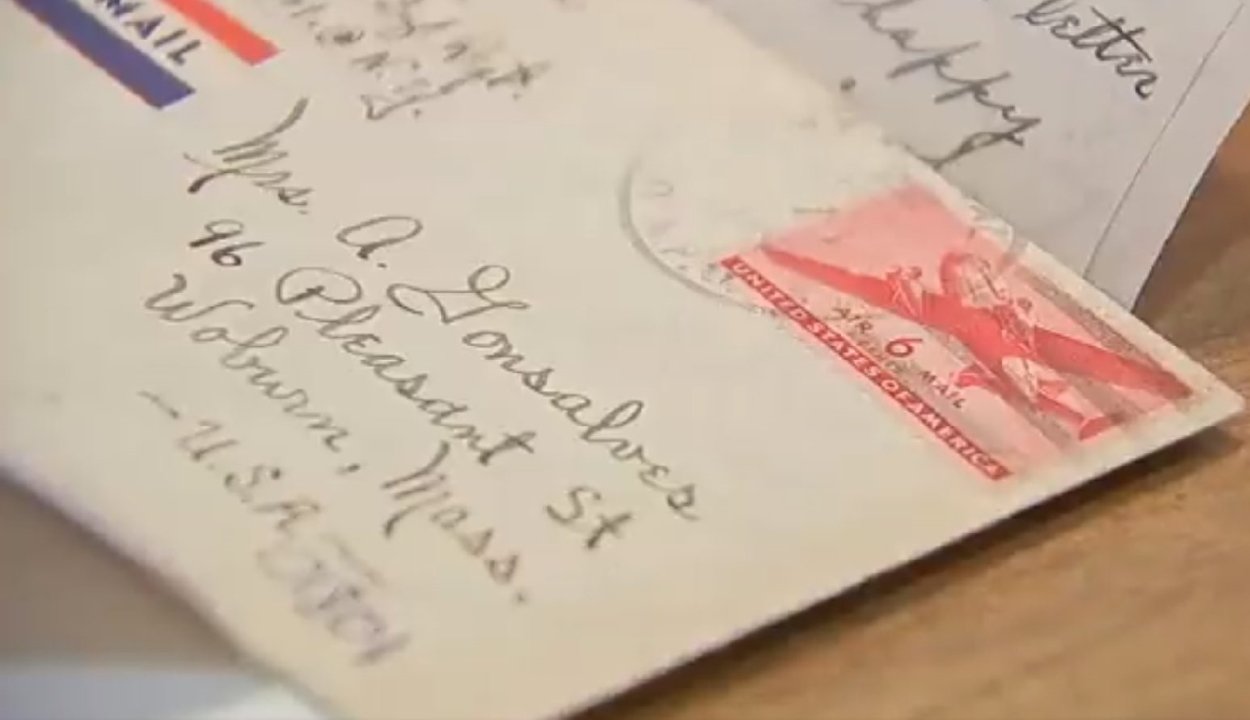 MAIL
N.Y.
Mrs. A. Gonsalves
96 Pleasant St
Woburn, Mass.
U.S.A
01801
UNITED STATES OF AMERICA
AIR 6 MAIL
letter
happy